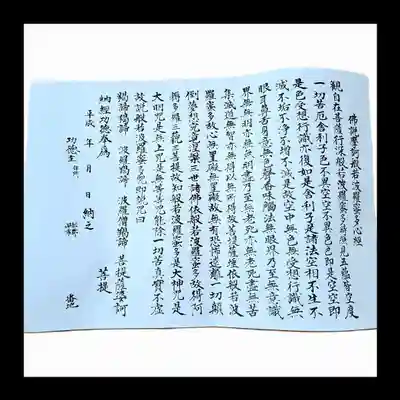 佛説摩訶般若波羅蜜多心経
観自在菩薩行深般若波羅蜜多時照見五蘊皆空度
一切苦厄舎利子色不異空空不異色色即是空空即
是色受想行識亦復如是舎利子是諸法空相不生不
滅不垢不浄不増不減是故空中無色無受想行識無
眼耳鼻舌身意無色声香味触法無眼界乃至無意識
界無無明亦無無明尽乃至無老死亦無老死尽無苦
集滅道無智亦無得以無所得故菩提薩埵依般若波
羅蜜多故心無罣礙無罣礙故無有恐怖遠離一切顛
倒夢想究竟涅槃三世諸佛依般若波羅蜜多故得阿
耨多羅三藐三菩提故知般若波羅蜜多是大神呪是
大明呪是無上呪是無等等呪能除一切苦真實不虚
故説般若波羅蜜多呪即説呪曰
羯諦羯諦 波羅羯諦 波羅僧羯諦 菩提薩婆訶
納経功徳奉為 菩提
平成 年 月 日 納之
功徳主 番地